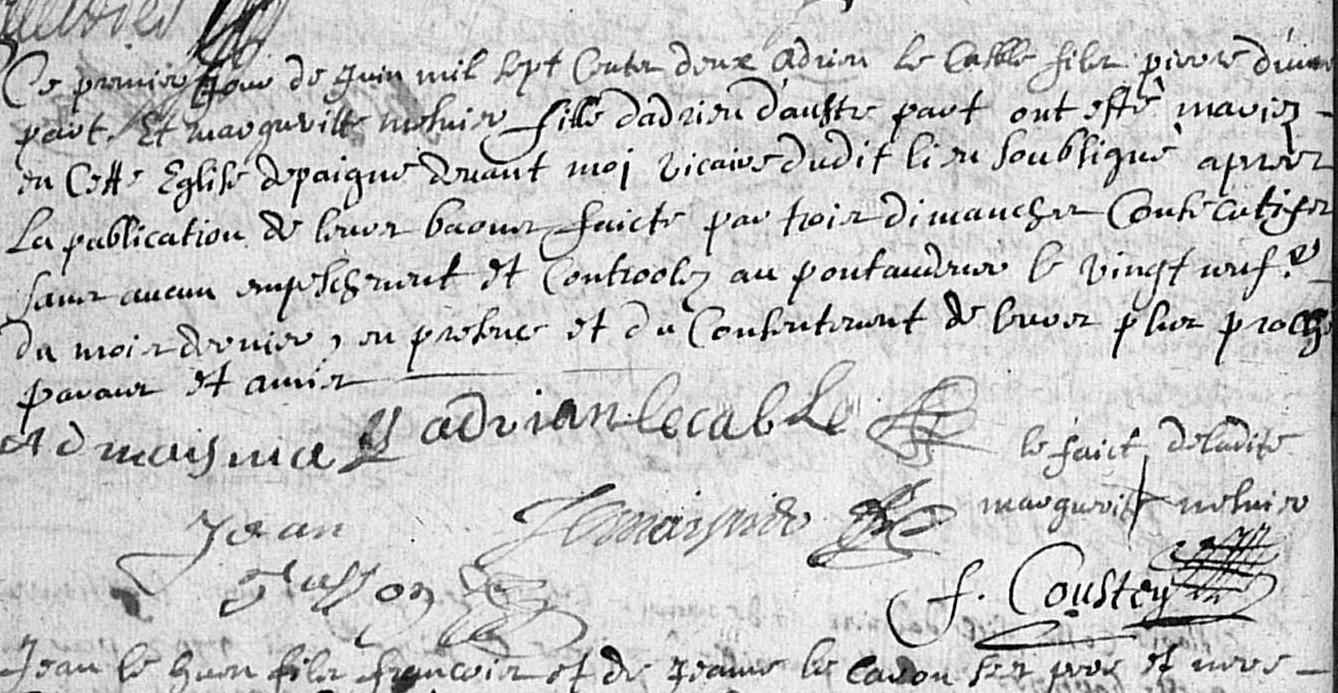 Ce premier jour de Juin mil sept cents deux adrien le cable fils pierre d'une
part. Et margueritte mesnier fille dadrien d'austre part ont esté mariez
en cette Eglise depaigné devant moi vicaire dudit lieu soubsigné apres
La publication de leurs bans faicte par trois dimanches consecutifes
sans aucun empeschement et controolez au pontaudemer le vingt neufe
du mois dernier, en presence et du consentement de leurs plus proches
parans et amis
adrian lecable
le faict deladite
marguerite mesnier
Jean
f. Coustey
Jean le huen fils francois et de Jeanne le cavon ses pere et mere